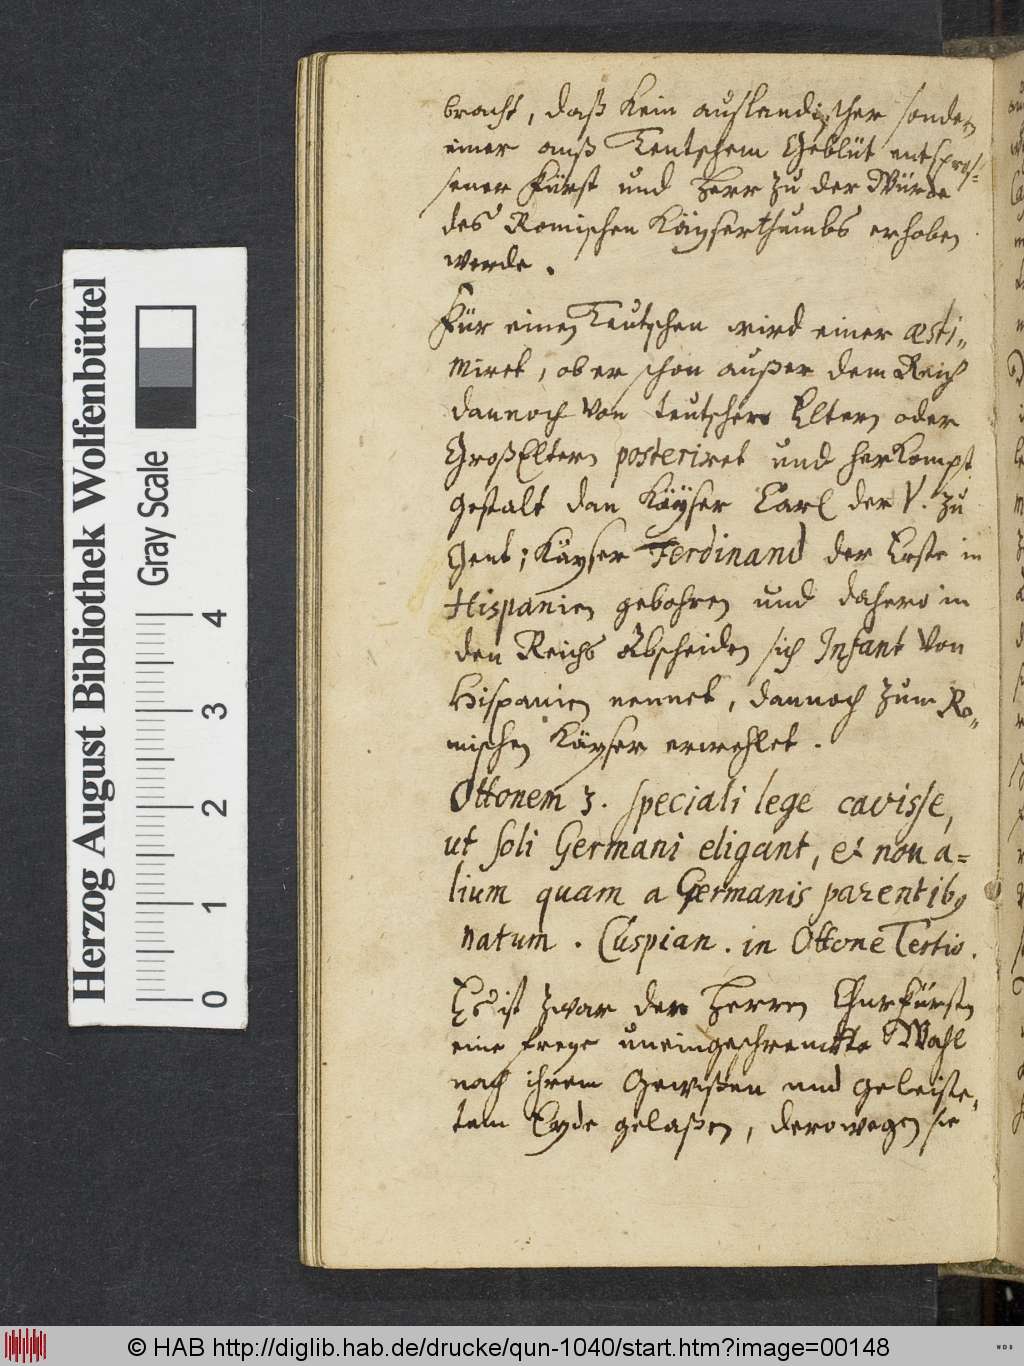 bracht, daß kein auslandischer sondern
einer auß Teutschem Geblüt entspros-
sener Fürst und Herr zu der Würde
des Romischen Käyserthumbs erhoben
werde.
Für einen Teutschen wird einer æsti-
miret, ob er schon außer dem Reich
dannoch von teutschen Eltern oder
GroßEltern posteriret und herkompt
gestalt dan Käyser Carl der V. zu
Gent; Käyser Ferdinand der Erste in
Hispanien gebohren und dahero in
den Reichs Abscheiden sich Infant von
Hispanien nennet, dannoch zum Ro-
mischen Käyser erwehlet.
Ottonem 3. speciali lege cavisse,
ut soli Germani eligant, et non a=
lium quam a Germanis parentibꝰ
natum. Cuspian. in Ottone Tertio.
Es ist zwar den Herren Churfürsten
eine freye uneingeschrenckte Wahl
nach ihrem Gewißen und geleiste-
tem Eyde gelaßen, derowegen sie
Herzog August Bibliothek Wolfenbüttel
Gray Scale
0 1 2 3 4
© HAB http://diglib.hab.de/drucke/qun-1040/start.htm?image=00148